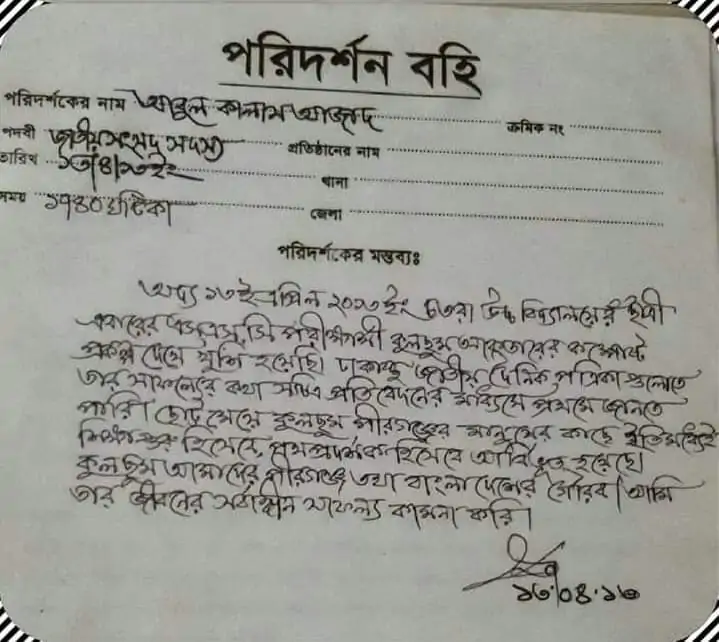 পরিদর্শন বহি
পরিদর্শকের নাম আবুল কালাম আজাদ ক্রমিক নং
পদবী জাতীয় সংসদ সদস্য প্রতিষ্ঠানের নাম
তারিখ ১৩/৪/১৩ইং থানা
সময় ১৭৪০ঘটিকা জেলা
পরিদর্শকের মন্তব্যঃ
অদ্য ১৩ই এপ্রিল ২০১৩ইং চতরা উচ্চ বিদ্যালয়ের ছাত্রী
এবারের এস,এস,সি পরীক্ষার্থী কুলছুম আকতারের কম্পোষ্ট
প্রকল্প দেখে খুশি হয়েছি। ঢাকাস্থ জাতীয় দৈনিক পত্রিকা গুলোতে
তার সাফল্যের কথা সচিত্র প্রতিবেদনের মাধ্যমে প্রথমে জানতে
পারি। ছোট্ট মেয়ে কুলছুম পীরগঞ্জের মানুষের কাছে ইতিমধ্যেই
শিক্ষাগুরু হিসেবে, পথপ্রদর্শক হিসেবে আবির্ভূত হয়েছে।
কুলছুম আমাদের পীরগঞ্জ তথা বাংলাদেশের গৌরব। আমি
তার জীবনের সর্বাঙ্গীন সাফল্য কামনা করি।
১৩.০৪.১৩